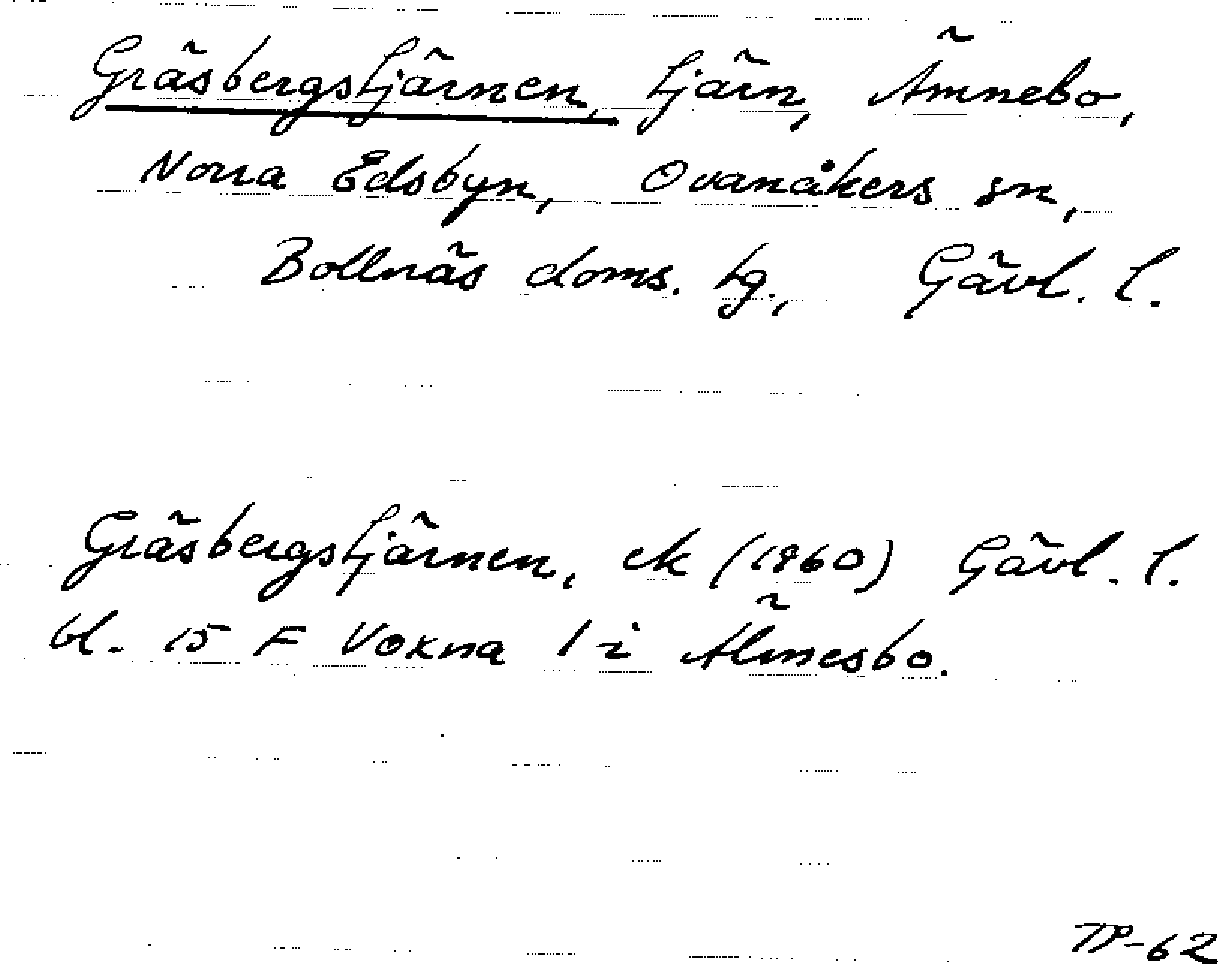 Gräsbergstjärnen, tjärn, Ämnebo,
Norra Edsbyn, Ovanåkers sn,
Bollnäs doms. tg., Gävl. l.
Gräsbergstjärnen, ek (1960) Gävl. l.
bl. 15 F Voxna 1 i Älmesbo.
TP-62